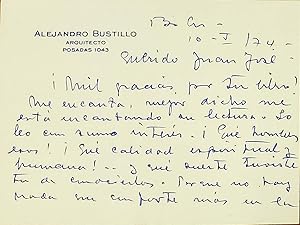 ALEJANDRO BUSTILLO
ARQUITECTO
POSADAS 1043
Bs As -
10 - V / 74 -
Querido Juan José -
¡Mil gracias, por tu libro.
Me encanta, mejor dicho me
está encantando su lectura. Lo
leo con sumo interés. ¡Qué hombres
esos! ¡Qué calidad espiritual y
humana!... y qué suerte tuviste
tu de conocerlos. Porque no hay
nada que importe más en la